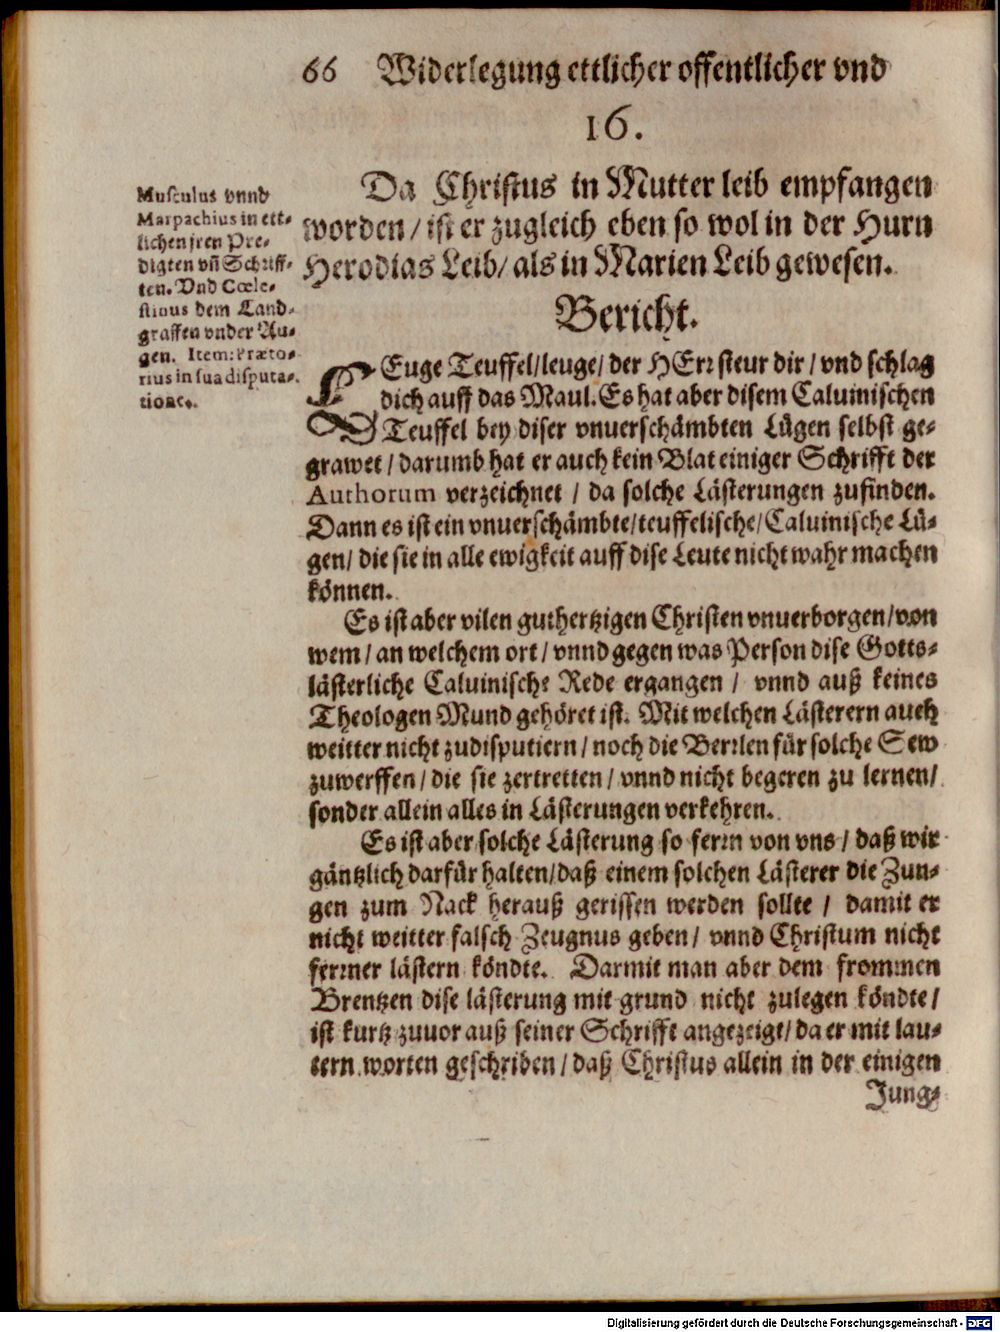 66 Widerlegung ettlicher offentlicher vnd
16.
Musculus vnnd
Marpachius in ett-
lichen jren Pre-
digten vñ Schriff-
ten. Vnd Cœle-
stinus dem Land-
graffen vnder Au-
gen. Item: Præto-
rius in sua disputa-
tione.
Da Christus in Mutter leib empfangen
worden / ist er zugleich eben so wol in der Hurn
Herodias Leib / als in Marien Leib gewesen.
Bericht.
LEuge Teuffel / leuge / der HErr steur dir / vnd schlag
dich auff das Maul. Es hat aber disem Caluinischen
Teuffel bey diser vnuerschämbten Lügen selbst ge-
grawet / darumb hat er auch kein Blat einiger Schrifft der
Authorum verzeichnet / da solche Lästerungen zufinden.
Dann es ist ein vnuerschämbte / teuffelische / Caluinische Lü-
gen / die sie in alle ewigkeit auff dise Leute nicht wahr machen
können.
Es ist aber vilen guthertzigen Christen vnuerborgen / von
wem / an welchem ort / vnnd gegen was Person dise Gotts-
lästerliche Caluinische Rede ergangen / vnnd auß keines
Theologen Mund gehöret ist. Mit welchen Lästerern auch
weitter nicht zudisputiern / noch die Berrlen für solche Sew
zuwerffen / die sie zertretten / vnnd nicht begeren zu lernen /
sonder allein alles in Lästerungen verkehren.
Es ist aber solche Lästerung so ferrn von vns / daß wir
gäntzlich darfür halten / daß einem solchen Lästerer die Zun-
gen zum Nack herauß gerissen werden sollte / damit er
nicht weitter falsch Zeugnus geben / vnnd Christum nicht
ferrner lästern köndte. Darmit man aber dem frommen
Brentzen dise lästerung mit grund nicht zulegen köndte /
ist kurtz zuuor auß seiner Schrifft angezeigt / da er mit lau-
tern worten geschriben / daß Christus allein in der einigen
Jung-
Digitalisierung gefördert durch die Deutsche Forschungsgemeinschaft - DFG